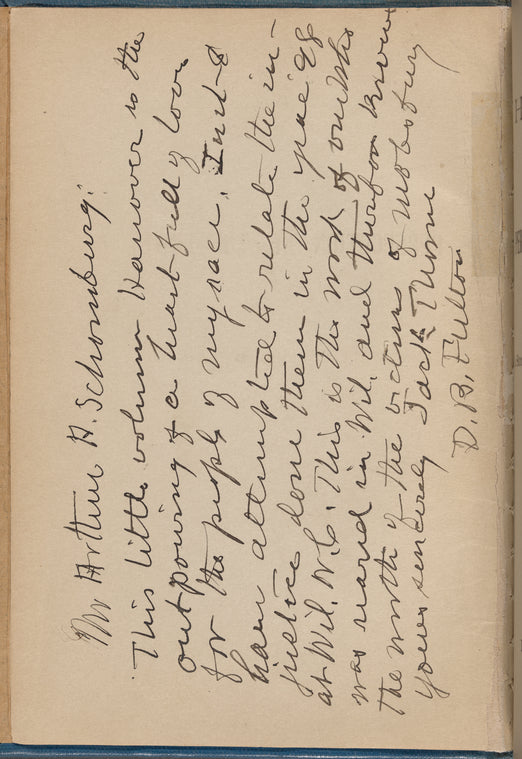 Mr Arthur A. Schomburg:
This little volumn Hanover is the
outpouring of a heart full of love
for the people of my race. In it I
have attempted to relate the in-
justice done them in the year 98
at Wil. N.C. This is the work of one who
was reared in Wil. and therefor knows
the worth of the victims of mobs fury
yours sincerely Jack Thorne
D. B. Fulton